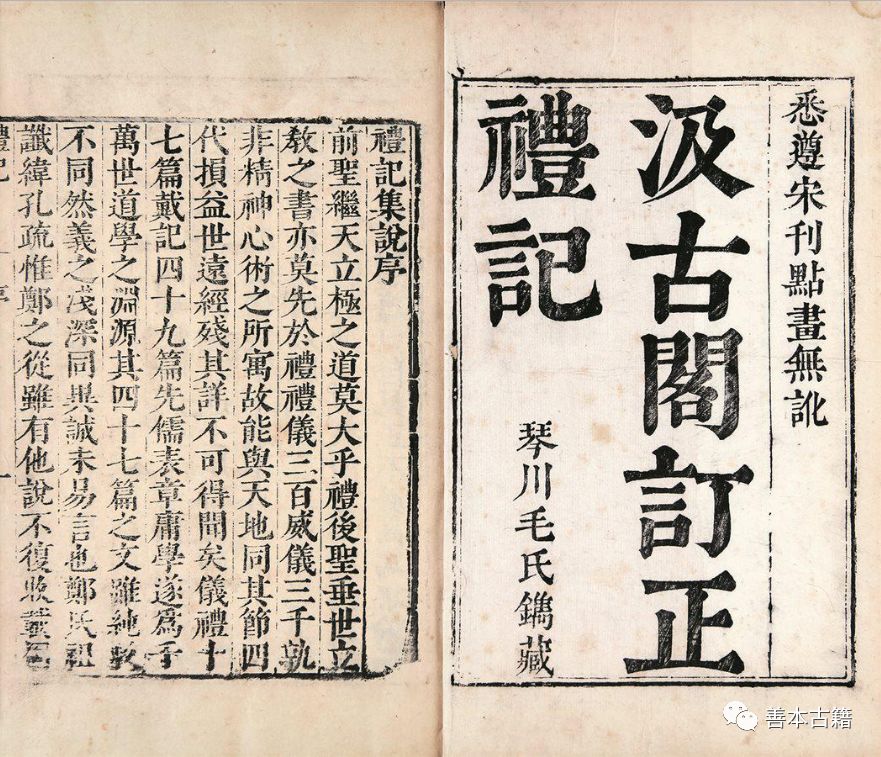 悉遵宋刊點畫無訛
汲古閣訂正
禮記
琴川毛氏鐫藏
禮記集說序
前聖繼天立極之道莫大乎禮後聖垂世立
敎之書亦莫先於禮禮儀三百威儀三千孰
非精神心術之所寓故能與天地同其節四
代損益世遠經殘其詳不可得聞矣儀禮十
七篇戴記四十九篇先儒表章庸學遂爲千
萬世道學之淵源其四十七篇之文雖純駁
不同然義之淺深同異誠未易言也鄭氏祖
讖緯孔疏惟鄭之從雖有他說不復收載
禮記 序 一
善本古籍